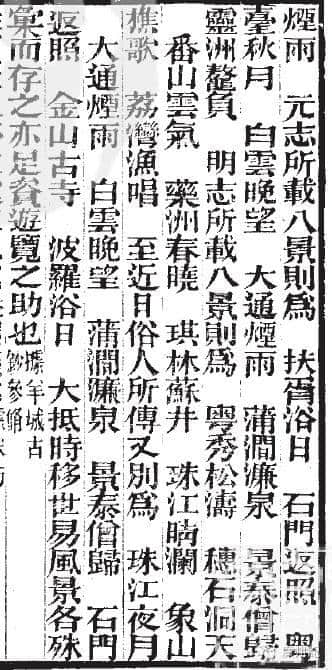 煙雨　元志所載八景則為　扶胥浴日　石門返照　粵
臺秋月　白雲晚望　大通煙雨　蒲澗濂泉　景泰僧歸
靈洲鰲負　明志所載八景則為　粵秀松濤　穗石洞天
番山雲氣　藥洲春曉　琪林蘇井　珠江晴瀾　象山
樵歌　荔灣漁唱　至近日俗人所傳又別為　珠江夜月
大通煙雨　白雲晚望　蒲澗濂泉　景泰僧歸　石門
返照　金山古寺　波羅浴日　大抵時移世易風景各殊
彙而存之亦足資遊覽之助也據羊城古鈔參脩